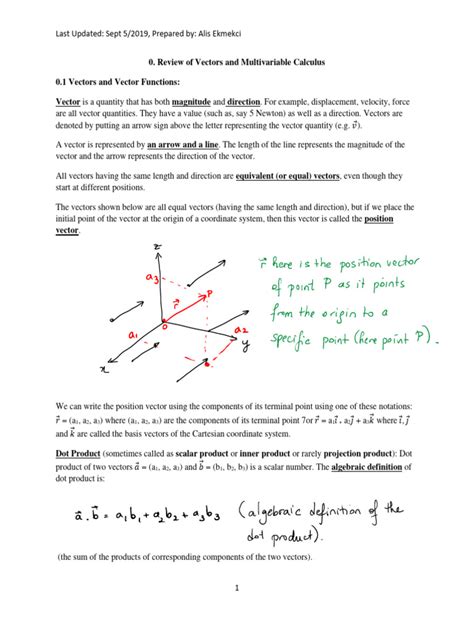 Last Updated: Sept 5/2019, Prepared by: Alis Ekmekci
0. Review of Vectors and Multivariable Calculus
0.1 Vectors and Vector Functions:
Vector is a quantity that has both magnitude and direction. For example, displacement, velocity, force
are all vector quantities. They have a value (such as, say 5 Newton) as well as a direction. Vectors are
denoted by putting an arrow sign above the letter representing the vector quantity (e.g. v⃗).
A vector is represented by an arrow and a line. The length of the line represents the magnitude of the
vector and the arrow represents the direction of the vector.
All vectors having the same length and direction are equivalent (or equal) vectors, even though they
start at different positions.
The vectors shown below are all equal vectors (having the same length and direction), but if we place the
initial point of the vector at the origin of a coordinate system, then this vector is called the position
vector.
z
a₃
r⃗
P
O
a₁
a₂
y
x
r⃗ here is the position vector
of point P as it points
from the origin to a
specific point (here point P).
We can write the position vector using the components of its terminal point using one of these notations:
r⃗ = (a₁, a₂, a₃) where (a₁, a₂, a₃) are the components of its terminal point 7or r⃗ = a₁i⃗ + a₂j⃗ + a₃k⃗ where i⃗, j⃗
and k⃗ are called the basis vectors of the Cartesian coordinate system.
Dot Product (sometimes called as scalar product or inner product or rarely projection product): Dot
product of two vectors a⃗ = (a₁, a₂, a₃) and b⃗ = (b₁, b₂, b₃) is a scalar number. The algebraic definition of
dot product is:
a⃗ . b⃗ = a₁b₁ + a₂b₂ + a₃b₃
(algebraic definition of the
dot product).
(the sum of the products of corresponding components of the two vectors).
1